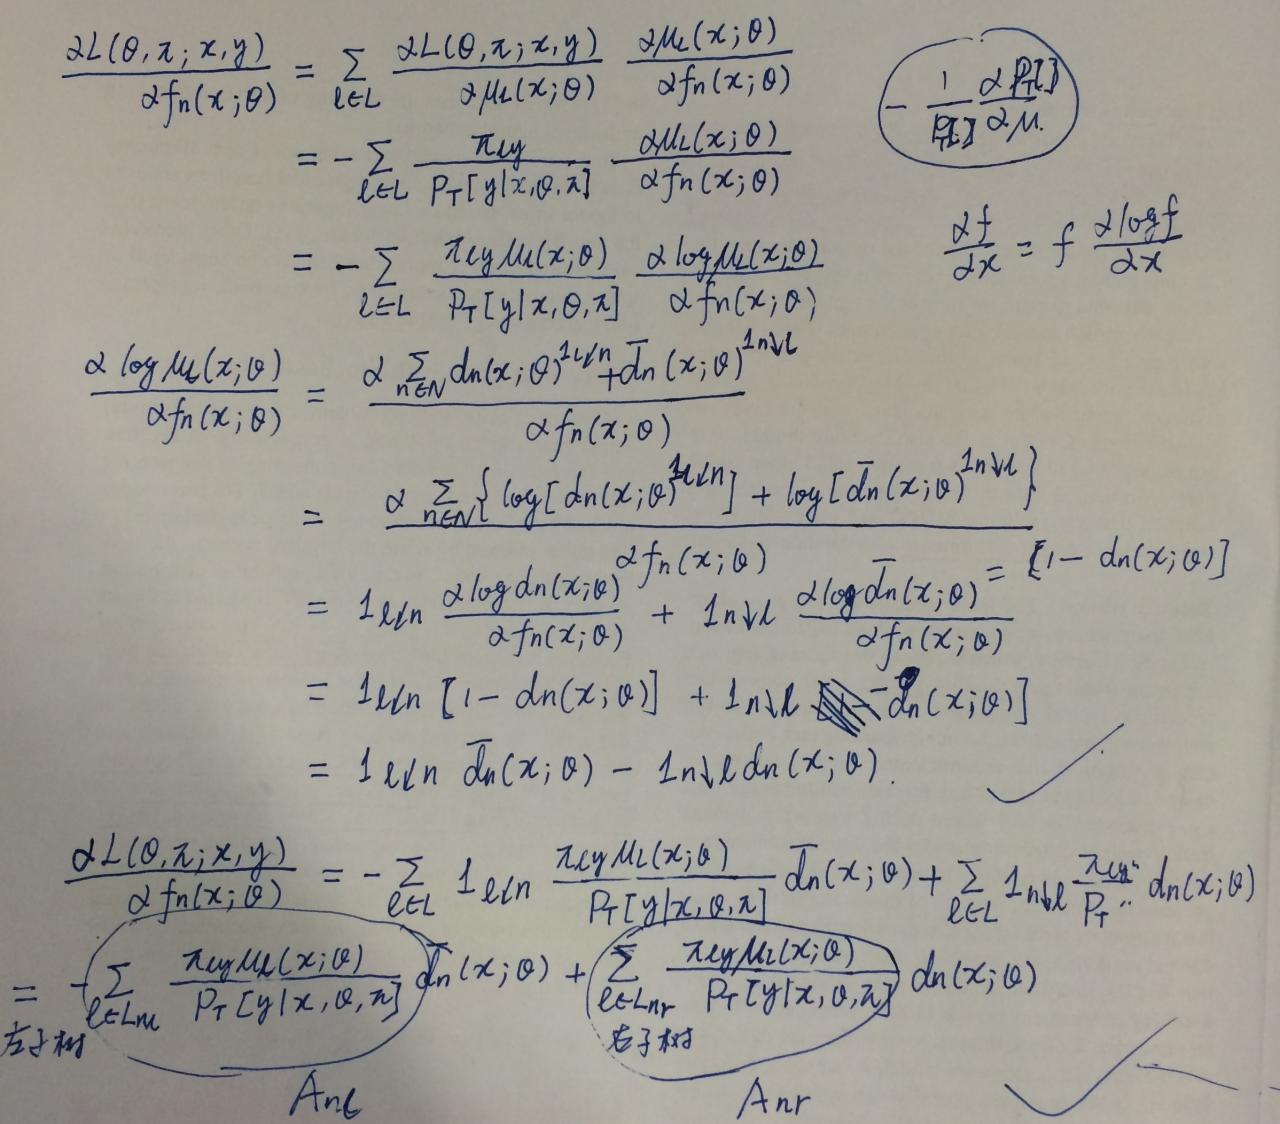 ∂L(θ,π;x,y)/∂fn(x;θ) = Σ_{ℓ∈L} ∂L(θ,π;x,y)/∂μ_ℓ(x;θ) ∂μ_ℓ(x;θ)/∂fn(x;θ)
- 1/P_T[.] ∂P_T[.]/∂μ.
= - Σ_{ℓ∈L} π_ℓy/P_T[y|x,θ,π] ∂μ_ℓ(x;θ)/∂fn(x;θ)
∂f/∂x = f ∂logf/∂x
= - Σ_{ℓ∈L} π_ℓy μ_ℓ(x;θ)/P_T[y|x,θ,π] ∂logμ_ℓ(x;θ)/∂fn(x;θ)
∂logμ_ℓ(x;θ)/∂fn(x;θ) = ∂ Σ_{n∈N} dn(x;θ)^{1ℓ↙n} + d̄n(x;θ)^{1n↘ℓ}/∂fn(x;θ)
= ∂ Σ_{n∈N} {log[dn(x;θ)^{1ℓ↙n}] + log[d̄n(x;θ)^{1n↘ℓ}}/∂fn(x;θ)
= 1ℓ↙n ∂logdn(x;θ)/∂fn(x;θ) + 1n↘ℓ ∂logd̄n(x;θ)/∂fn(x;θ) = [1-dn(x;θ)]
= 1ℓ↙n [1-dn(x;θ)] + 1n↘ℓ -dn(x;θ)]
= 1ℓ↙n d̄n(x;θ) - 1n↘ℓ dn(x;θ).
∂L(θ,π;x,y)/∂fn(x;θ) = - Σ_{ℓ∈L} 1ℓ↙n π_ℓy μ_ℓ(x;θ)/P_T[y|x,θ,π] d̄n(x;θ) + Σ_{ℓ∈L} 1n↘ℓ π_ℓy··/P_T·· dn(x;θ)
= - Σ_{ℓ∈Lnl} π_ℓy μ_ℓ(x;θ)/P_T[y|x,θ,π] d̄n(x;θ) + Σ_{ℓ∈Lnr} π_ℓy μ_ℓ(x;θ)/P_T[y|x,θ,π] dn(x;θ)
左子树 右子树
Anl Anr